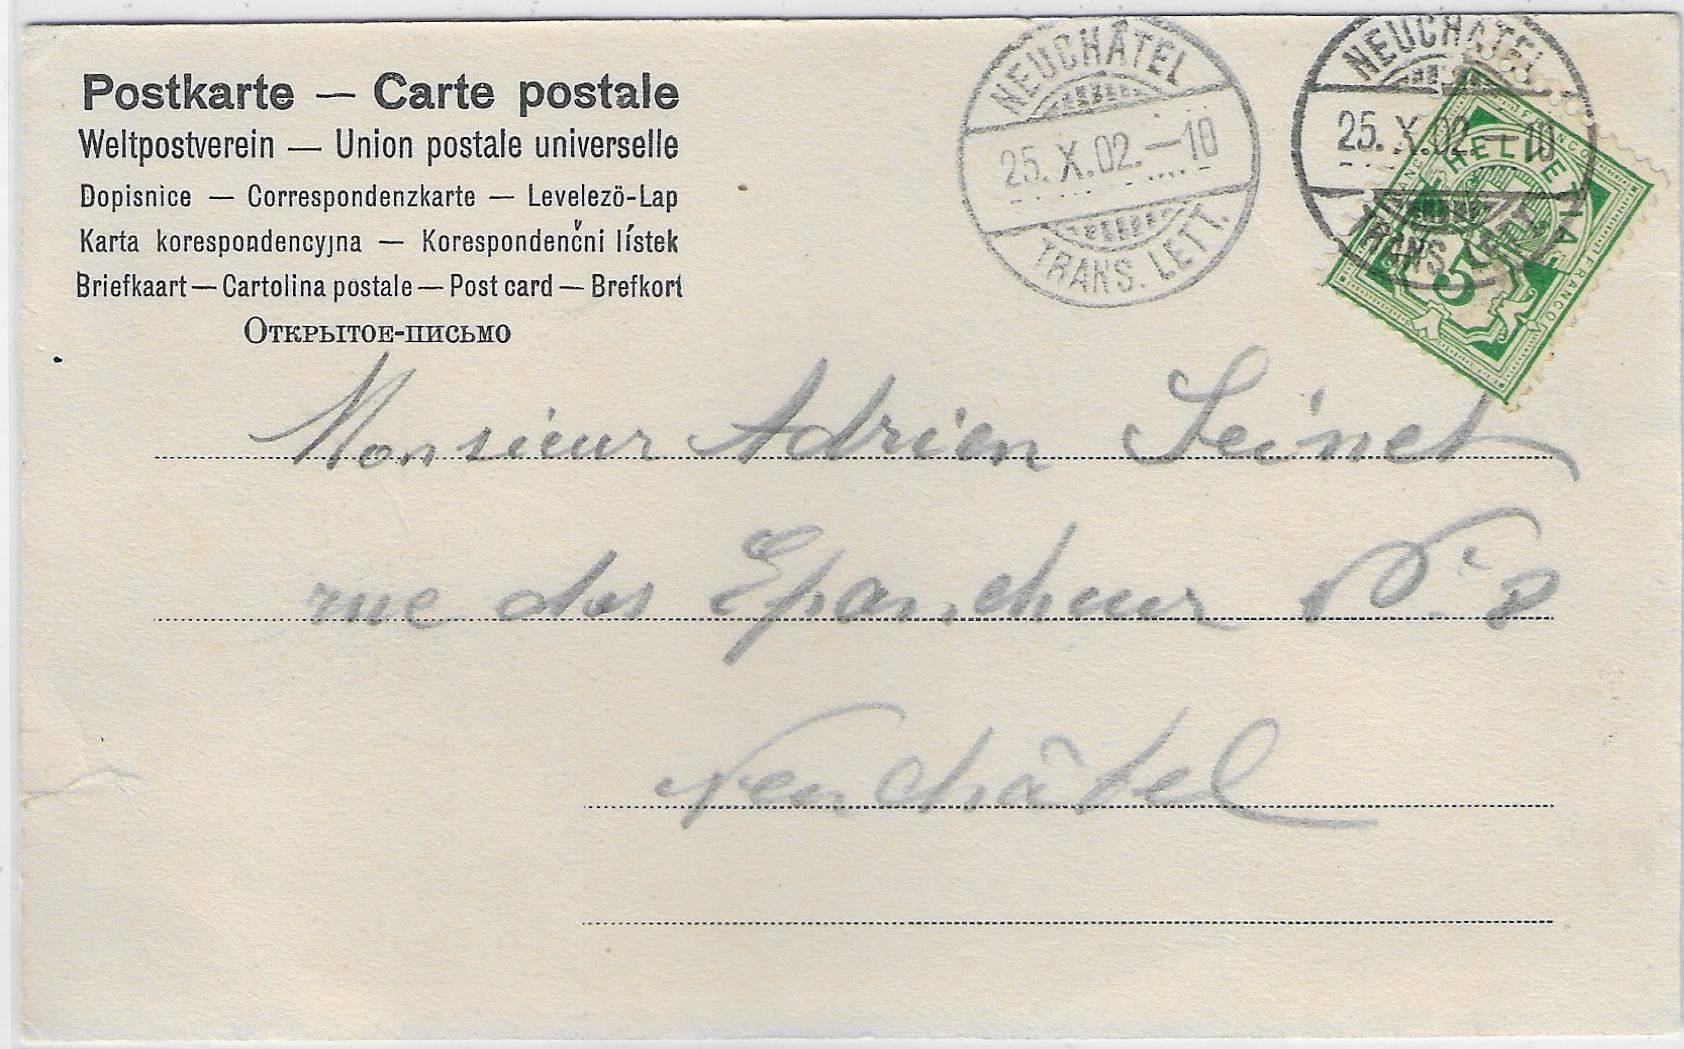 Postkarte — Carte postale
Weltpostverein — Union postale universelle
Dopisnice — Correspondenzkarte — Levelezö-Lap
Karta korespondencyjna — Korespondenční lístek
Briefkaart — Cartolina postale — Post card — Brefkort
Открытое-письмо
NEUCHÂTEL
25. X. 02. — 10
TRANS. LETT.
NEUCHÂTEL
25. X. 02. — 10
TRANS. LETT.
FRANCO
HELVETIA
FRANCO
FRANCO
5
Monsieur Adrien Seinet
rue des Epancheurs N° 8
Neuchâtel